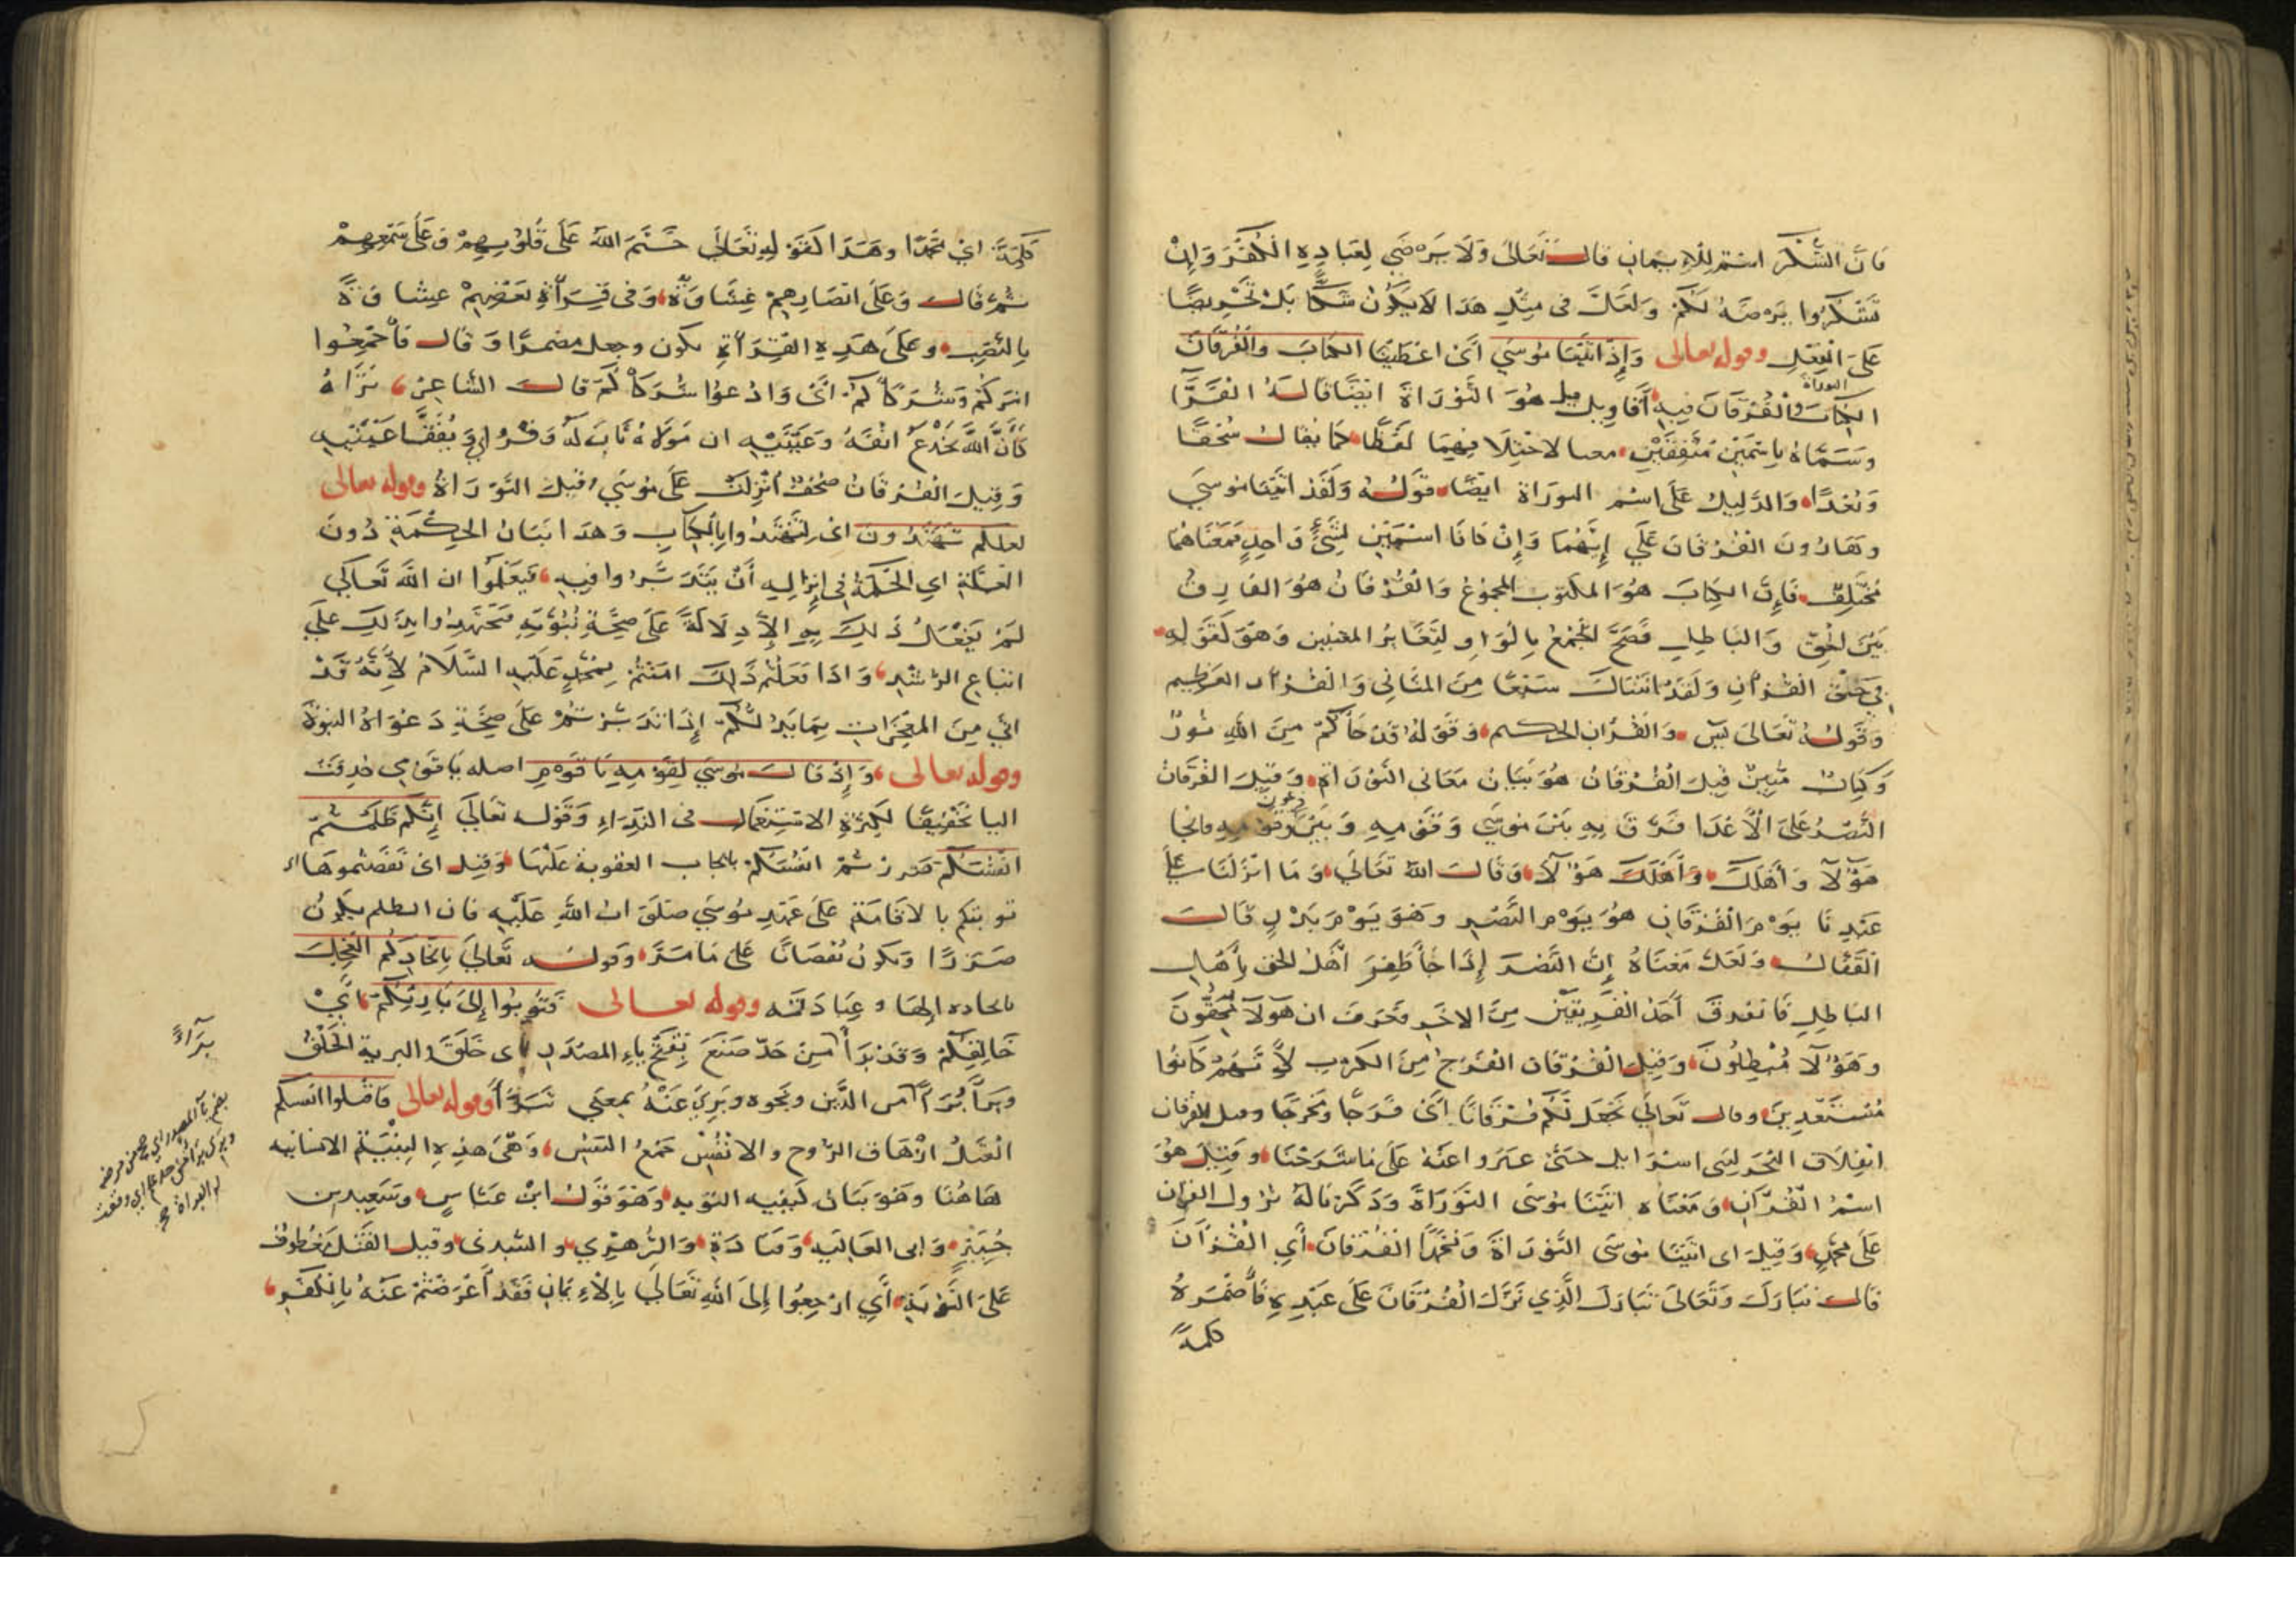 فان الشكر اسم للايمان قال تعالى ولا يرضي لعباده الكفر وان
تشكروا يرضه لكم ولعل في مثل هذا لا يكون شكا بل تحريضا
على الفعل وقوله تعالى واذ اتينا موسي اى اعطينا الكتاب والفرقان
التوراة
الكتاب والفرقان فيه اقاويل قيل هو التوراة ايضا قاله الفرا
وسماه باسمين متفقين معنا لاختلافهما لفظا كما يقال سحقا
وبعدا والدليل على اسم التوراة ايضا قوله ولقد اتينا موسي
وهارون الفرقان علي انهما وان كانا اسمين لشئ واحد فمعناهما
مختلف فان الكتاب هو المكتوب المجموع والفرقان هو الفارق
بين الحق والباطل فصح الجمع بالواو لتغاير المعنيين وهو كقوله
في حق القران ولقد اتيناك سبعا من المثاني والقران العظيم
وقوله تعالى يس والقران الحكيم وقوله قد جاكم من الله نور
وكتاب مبين قيل الفرقان هو بيان معاني التوراة وقيل الفرقان
النصر على الاعدا فرق به بين موسي وقومه وبين فرعون وقومه فانجا
هؤلا واهلك واهلك هؤلا وقال الله تعالي وما انزلنا على
عبدنا يوم الفرقان هو يوم النصر وهو يوم بدر قال
القفال ولعل معناه ان النصر اذا جا ظفر اهل الحق باهل
الباطل فانفرق احد الفريقين من الاخر فعرف ان هولا محقون
وهؤلا مبطلون وقيل الفرقان الفرج من الكرب لانهم كانوا
مستعبدين وقال تعالي يجعل لكم فرقانا اى فرجا ومخرجا وقيل الفرقان
انفلاق البحر لبنى اسرايل حتى عبروا عنه على ما شرحنا وقيل هو
اسم القران ومعناه اتينا موسى التوراة وذكرنا له نزول القران
على محمد وقيل اى اتينا موسى التوراة ومحمدا الفرقان اي القران
قال تبارك وتعالى تبارك الذي نزل الفرقان على عبده فاضمر له
كلمة
كلمة اي محمدا وهذا كقوله تعالى ختم الله على قلوبهم وعلى سمعهم
ثم قال وعلى ابصارهم غشاوة وفي قراة بعضهم غشاوة
بالنصب وعلى هذه القراة يكون وجعل مضمرا وقال فاجمعوا
امركم وشركاكم اى وادعوا شركاكم قال الشاعر نراه
كان الله يجدع انفه وعينيه ان مولاه ثاب له وفر
وقيل الفرقان صحف انزلت على موسي قبل التوراة وقوله تعالى
لعلكم تهتدون اى لتهتدوا بالكتاب وهذا بيان الحكمة دون
العلة اي الحكمة في انزاله ان يتدبروا فيه فيعلموا ان الله تعالي
لم يفعل ذلك به الا دلالة على صحة نبوته فتهتدوا بذلك علي
اتباع الرشد واذا فعلتم ذلك امنتم بمحمد عليه السلام لانه قد
اتي من المعجزات بما يدلكم اذا تدبرتم على صحة دعواه النبوة
وقوله تعالى واذ قال موسي لقومه يا قوم اصله يا قومي حذفت
اليا تخفيفا لكثرة الاستعمال في النداء وقوله تعالي انكم ظلمتم
انفسكم ضررتم انفسكم بايجاب العقوبة عليها وقيل اى نقصتموها
توبتكم بالاقامة على عهد موسي صلوات الله عليه فان الظلم يكون
ضررا ويكون نقصانا على ما مر وقوله تعالي باتخاذكم العجل
باتخاذه الها وعبادته وقوله تعالى فتوبوا الى بارئكم اي
خالقكم وقد برا من حد صنع بفتح باء المصدر اى خلق البرية الخلق
وبرا برا من الدين ونحوه وبري عنه بمعني تبرا وقوله تعالى فاقتلوا انفسكم
القتل ازهاق الروح والانفس جمع النفس وهى هذه البنية الانسانيه
هاهنا وهو بيان كيفيه التوبه وهو قول ابن عباس وسعيد بن
جبير وابى العاليه وقتادة والزهري والسدى وقيل القتل معطوف
على التوبة اي ارجعوا الى الله تعالي بالايمان فقد اعرضتم عنه بالكفر
براءً